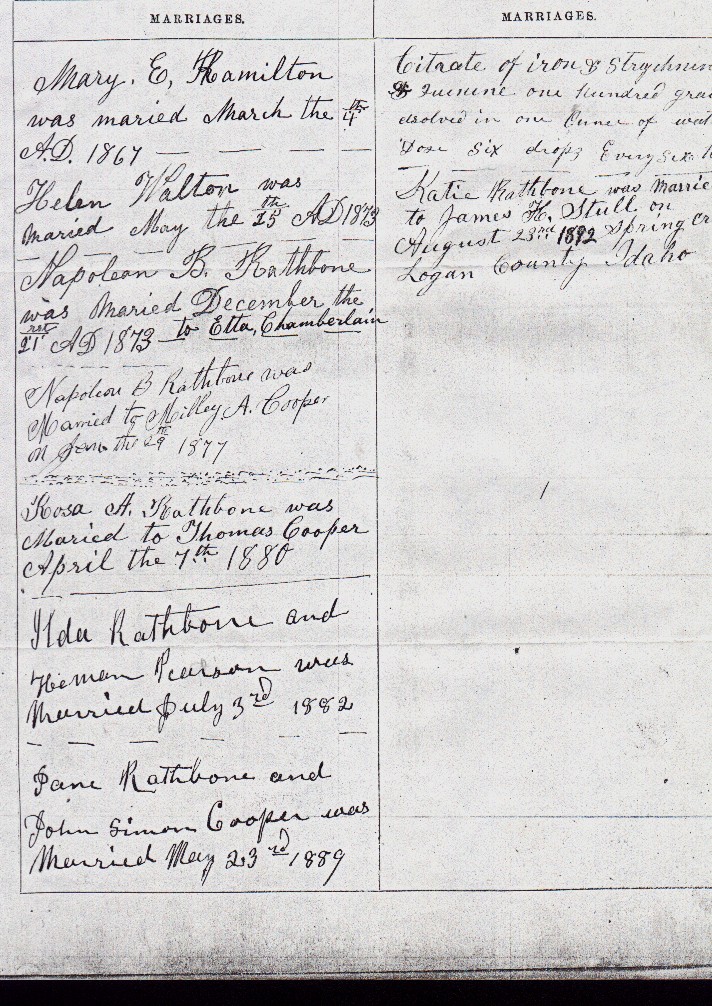 MARRIAGES.
Mary. E, Hamilton
was maried March the 4th
A.D. 1867
Helen Walton was
maried May the 25th AD 1873
Napoleon B. Rathbone
was Maried December the
21rst AD 1873 to Etta, Chamberlain
Napoleon B Rathbone was
Married to Milley A. Cooper
on Jan the 29th 1877
Rosa A. Rathbone was
Maried to Thomas Cooper
April the 7th 1880
Ilda Rathbone and
Heman Pearson was
Married July 3rd 1882
Jane Rathbone and
John Simon Cooper was
Married May 23rd 1889
MARRIAGES.
Citrate of iron & Strychnin
& Quinine one hundred grai
dsolved in one Ounce of wat
Dose Six drops Every Six h
Katie Rathbone was Marrie
to James H. Stull on
August 23rd 1892 Spring Cr
Logan County Idaho